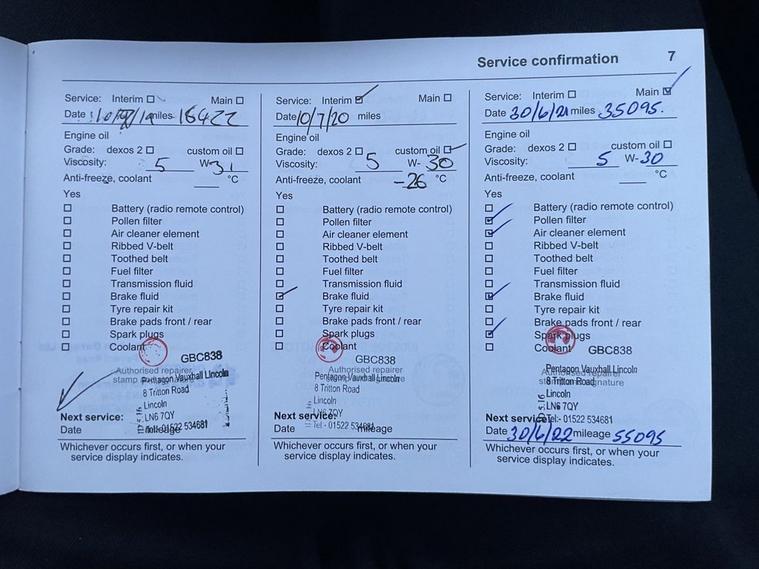 Service confirmation 7
Service: Interim Main
Date miles 16422
Engine oil
Grade: dexos 2 custom oil
Viscosity: 5 W-
Anti-freeze, coolant °C
Yes
Battery (radio remote control)
Pollen filter
Air cleaner element
Ribbed V-belt
Toothed belt
Fuel filter
Transmission fluid
Brake fluid
Tyre repair kit
Brake pads front / rear
Spark plugs
Coolant GBC838
Authorised repairer
stamp
Pentagon Vauxhall Lincoln
8 Tritton Road
Lincoln
LN6 7QY
Tel:- 01522 534681
Next service:
Date mileage
Whichever occurs first, or when your
service display indicates.
Service: Interim Main
Date 10/7/20 miles
Engine oil
Grade: dexos 2 custom oil
Viscosity: 5 W- 30
Anti-freeze, coolant -26 °C
Yes
Battery (radio remote control)
Pollen filter
Air cleaner element
Ribbed V-belt
Toothed belt
Fuel filter
Transmission fluid
Brake fluid
Tyre repair kit
Brake pads front / rear
Spark plugs
Coolant GBC838
Authorised repairer
Pentagon Vauxhall Lincoln
8 Tritton Road
Lincoln
LN6 7QY
Tel:- 01522 534681
Next service:
Date mileage
Whichever occurs first, or when your
service display indicates.
Service: Interim Main
Date 30/6/21 miles 35095.
Engine oil
Grade: dexos 2 custom oil
Viscosity: 5 W-30
Anti-freeze, coolant °C
Yes
Battery (radio remote control)
Pollen filter
Air cleaner element
Ribbed V-belt
Toothed belt
Fuel filter
Transmission fluid
Brake fluid
Tyre repair kit
Brake pads front / rear
Spark plugs
Coolant GBC838
Authorised repairer
stamp signature
Pentagon Vauxhall Lincoln
8 Tritton Road
Lincoln
LN6 7QY
Tel:- 01522 534681
Next service:
Date 30/6/22 mileage 55095
Whichever occurs first, or when your
service display indicates.